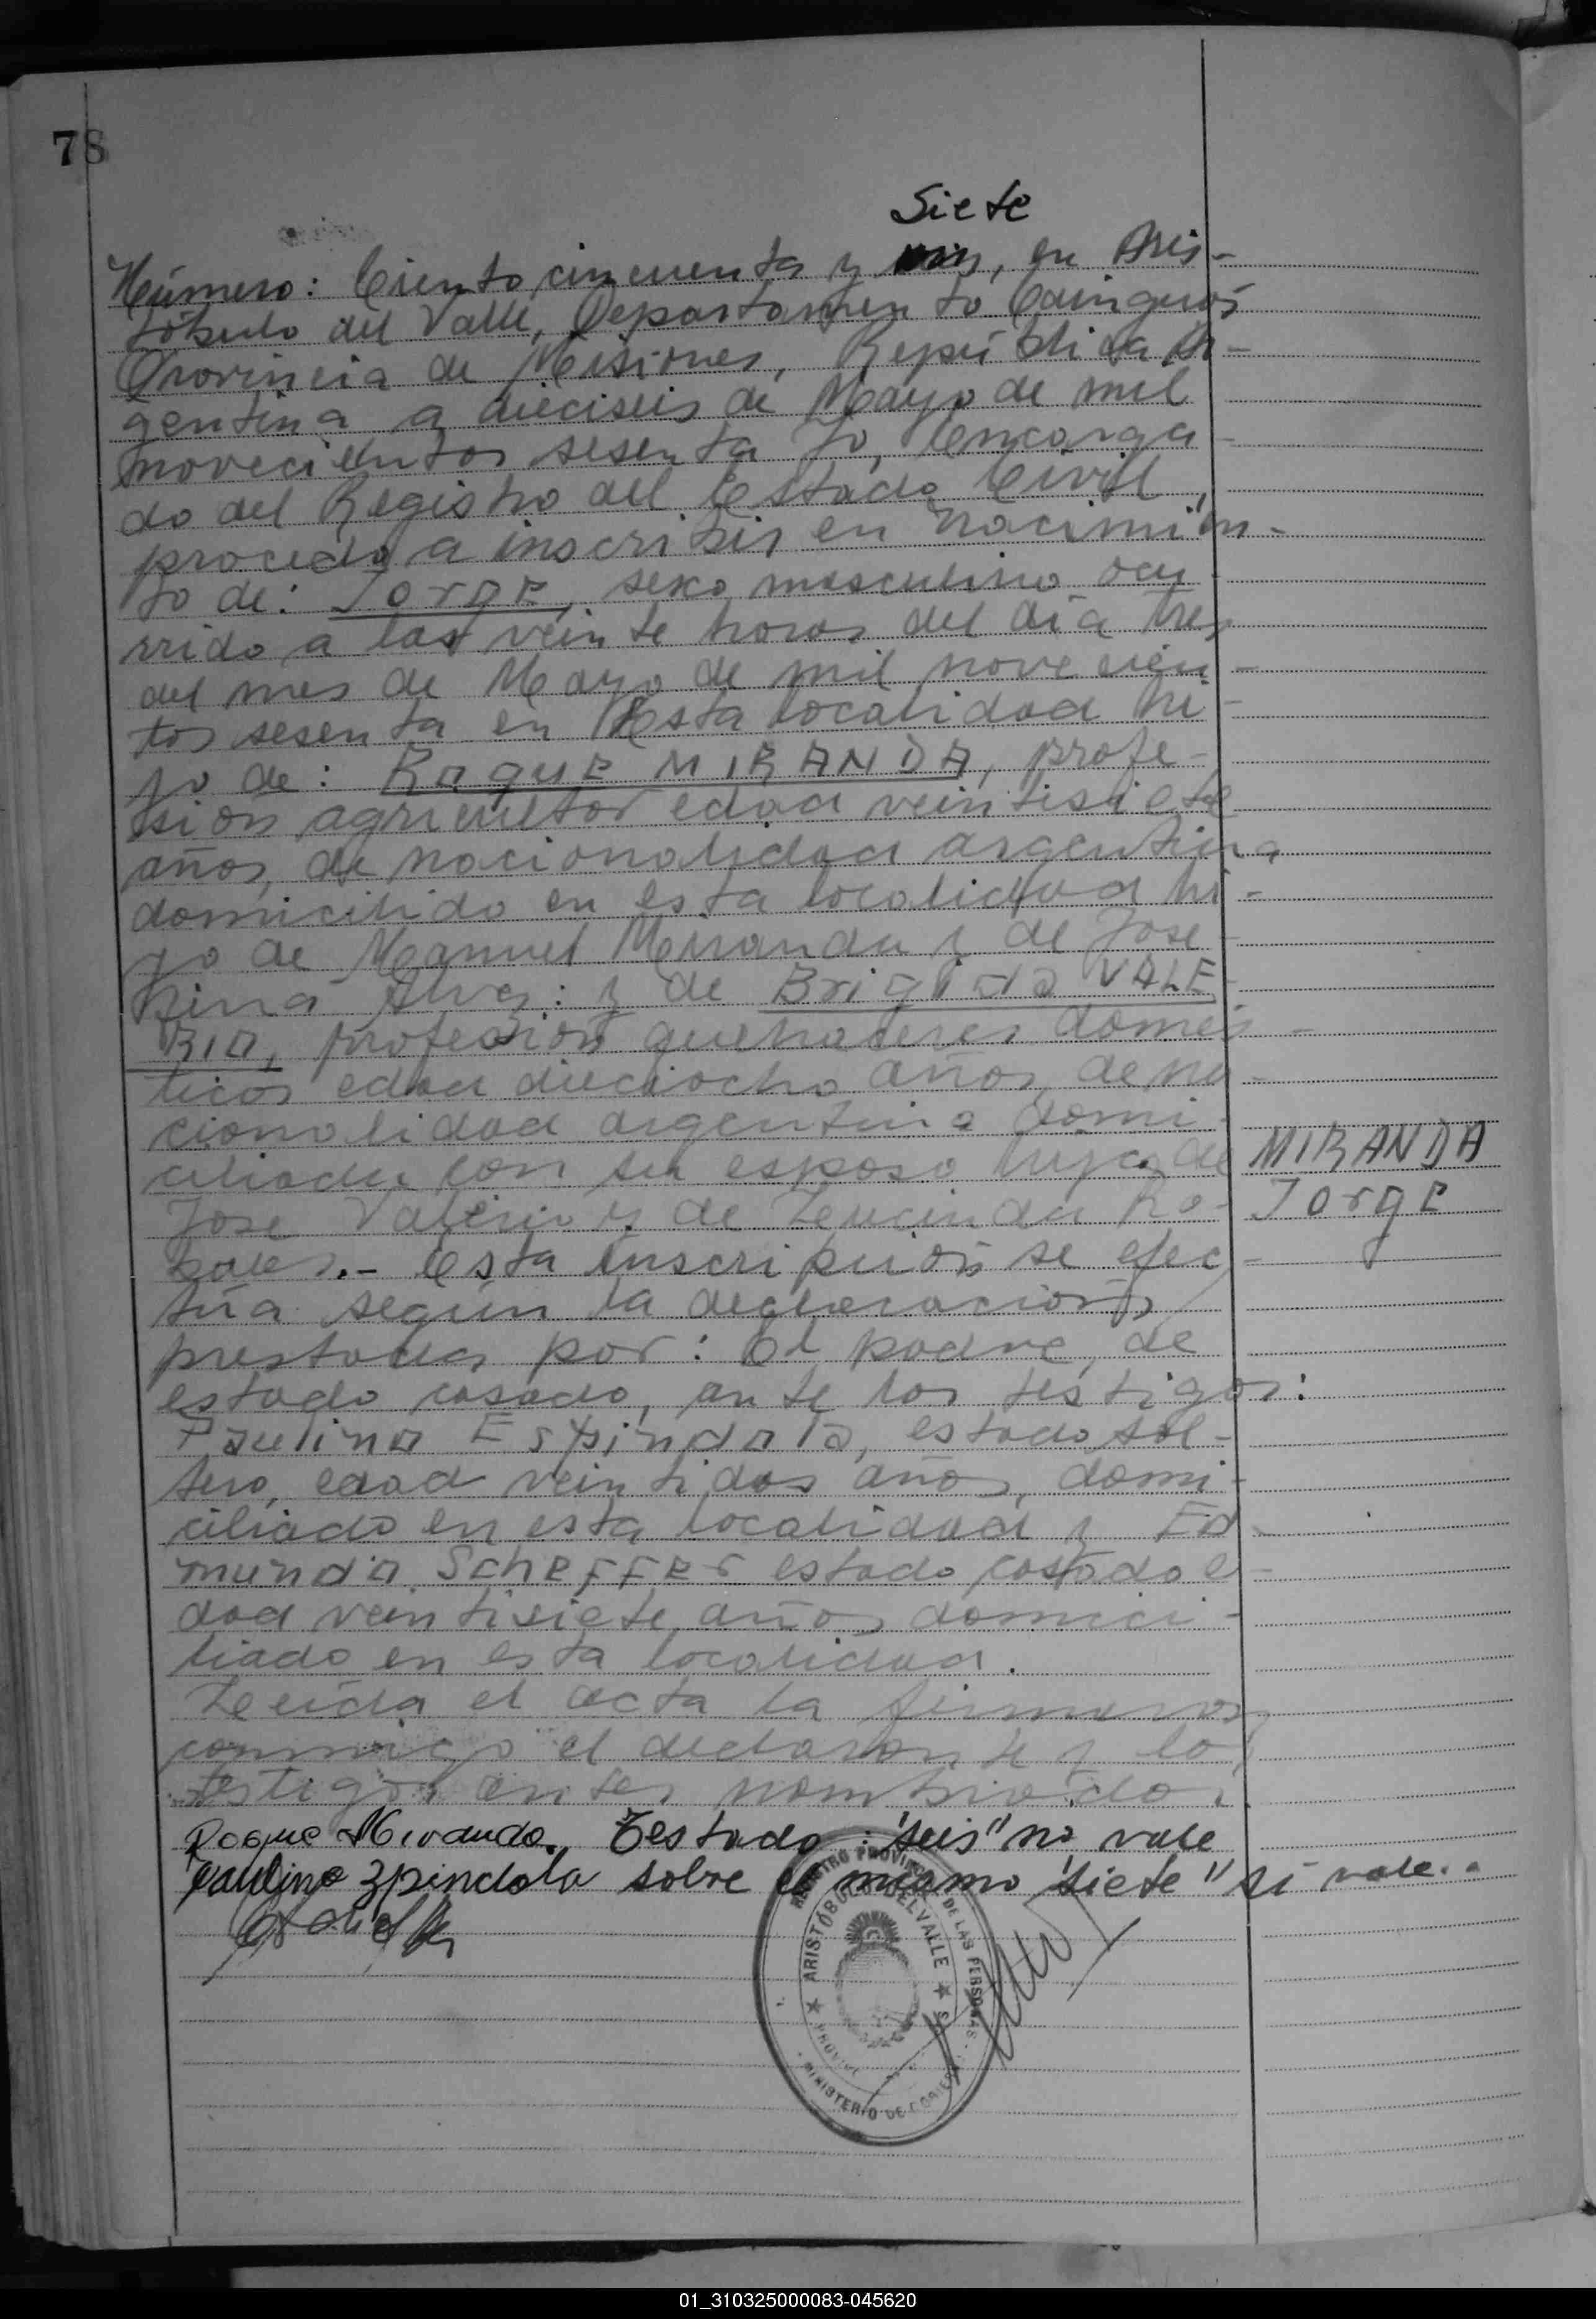 78
Siete
Número: Ciento cincuenta y seis, en Aris-
tóbulo del Valle, Departamento Cainguás
Provincia de Misiones, República Ar-
gentina a dieciseis de Mayo de mil
novecientos sesenta Yo, Encarga-
do del Registro del Estado Civil,
procedo a inscribir en nacimien-
to de: Jorge, sexo masculino ocu
rrido a las veinte horas del día tres
del mes de Mayo de mil novecien-
tos sesenta en Esta localidad hi-
jo de: Roque MIRANDA, profe-
sión agricultor edad veintisiete
años, de nacionalidad argentina
domicilido en esta localidad hi-
jo de Manuel Miranda y de Jose-
fina Alves: y de Brigida VALE-
RIO, profesión quehaceres domés-
ticos edad dieciocho años, de na-
cionalidad argentina domi-
ciliada con su esposo hija de
José Valerio y de Leucinda
Esta inscripción se efec-
túa según la declaración
prestada por: El padre, de
estado casado, ante los testigos:
Paulino Espindola, estado sol-
tero, edad veintidos años, domi-
ciliado en esta localidad y Ed-
mundo Scheffer estado casado e-
dad veintisiete años domici-
liado en esta localidad.
Leída el acta la firmaron
conmigo el declarante y los
testigos antes nombrados.
Roque Miranda. Testado: "seis" no vale
Paulino Spindola sobre el mismo "siete" sí vale.
MIRANDA
Jorge
REGISTRO PROVINCIAL DE LAS PERSONAS
ARISTÓBULO DEL VALLE
MINISTERIO DE GOBIERNO
01_310325000083-045620